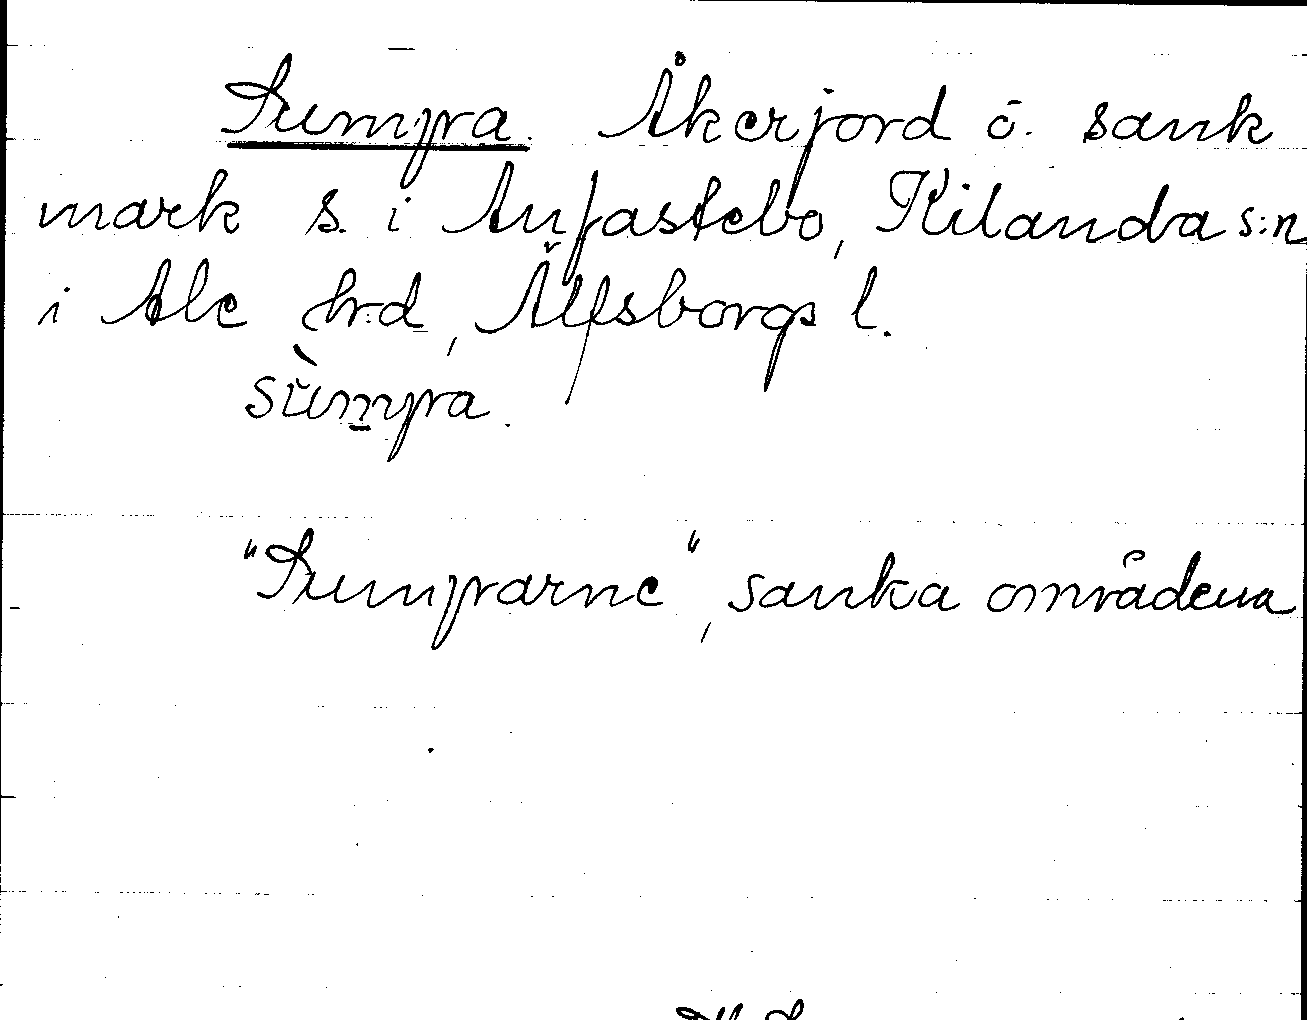 Sumpra. Åkerjord o. sank
mark s. i Anfastebo, Kilanda s:n
i Ale hrd, Älfsborgs l.
sùmpra.
"Sumprarne", sanka områdena